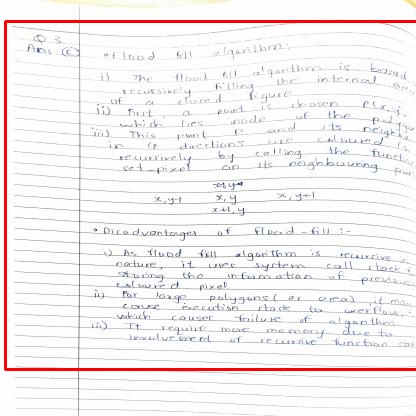 Q 3
Ans: (C)
• flood fill algorithm:
i) The flood fill algorithm is based
recursively filling the internal
of a closed figure
ii) First, a point is chosen P(x,y),
which lies inside of the
iii) This point P and its
in 4 directions are coloured
recursively by calling the
set-pixel on its neighbouring
x, y-1 x, y x, y+1
x+1, y
• Disadvantages of flood-fill :-
i) As flood fill algorithm is recursive in
nature, it uses system call stack
storing the information of
coloured pixel
ii) For large polygons (or area), it may
cause execution stack to overflow,
which causes failure of algorithm
iii) It require more memory due to
involvement of recursive function